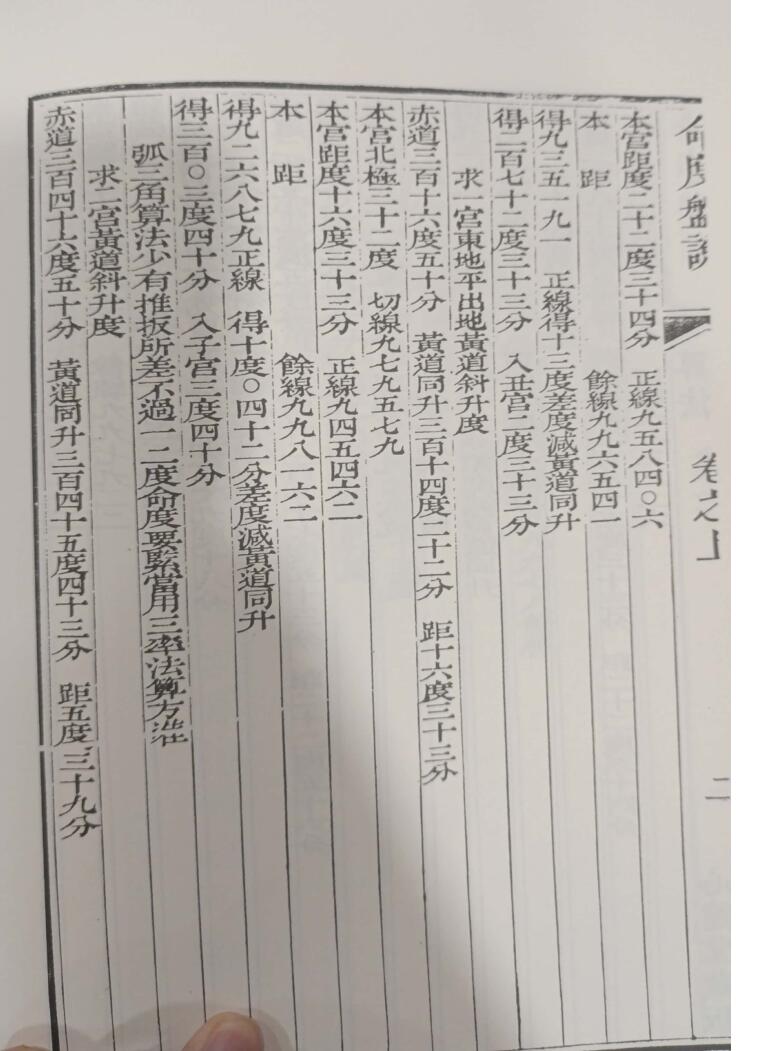 命度盤說 卷之上 二
本宮距度二十二度三十四分 正線九五八四〇六
本 距 餘線九九六五四一
得九三五一九一 正線得十三度差度減黃道同升
得二百七十二度三十三分 入丑宮二度三十三分
求一宮東地平出地黃道斜升度
赤道三百十六度五十分 黃道同升三百十四度二十二分 距十六度三十三分
本宮北極三十二度 切線九七九五七九
本宮距度十六度三十三分 正線九四五四六二
本 距 餘線九九八一六二
得九二六八七九正線 得十度〇四十二分差度減黃道同升
得三百〇三度四十分 入子宮三度四十分
弧三角算法少有推扳所差不過一二度命度要緊當用三率法算方准
求二宮黃道斜升度
赤道三百四十六度五十分 黃道同升三百四十五度四十三分 距五度三十九分